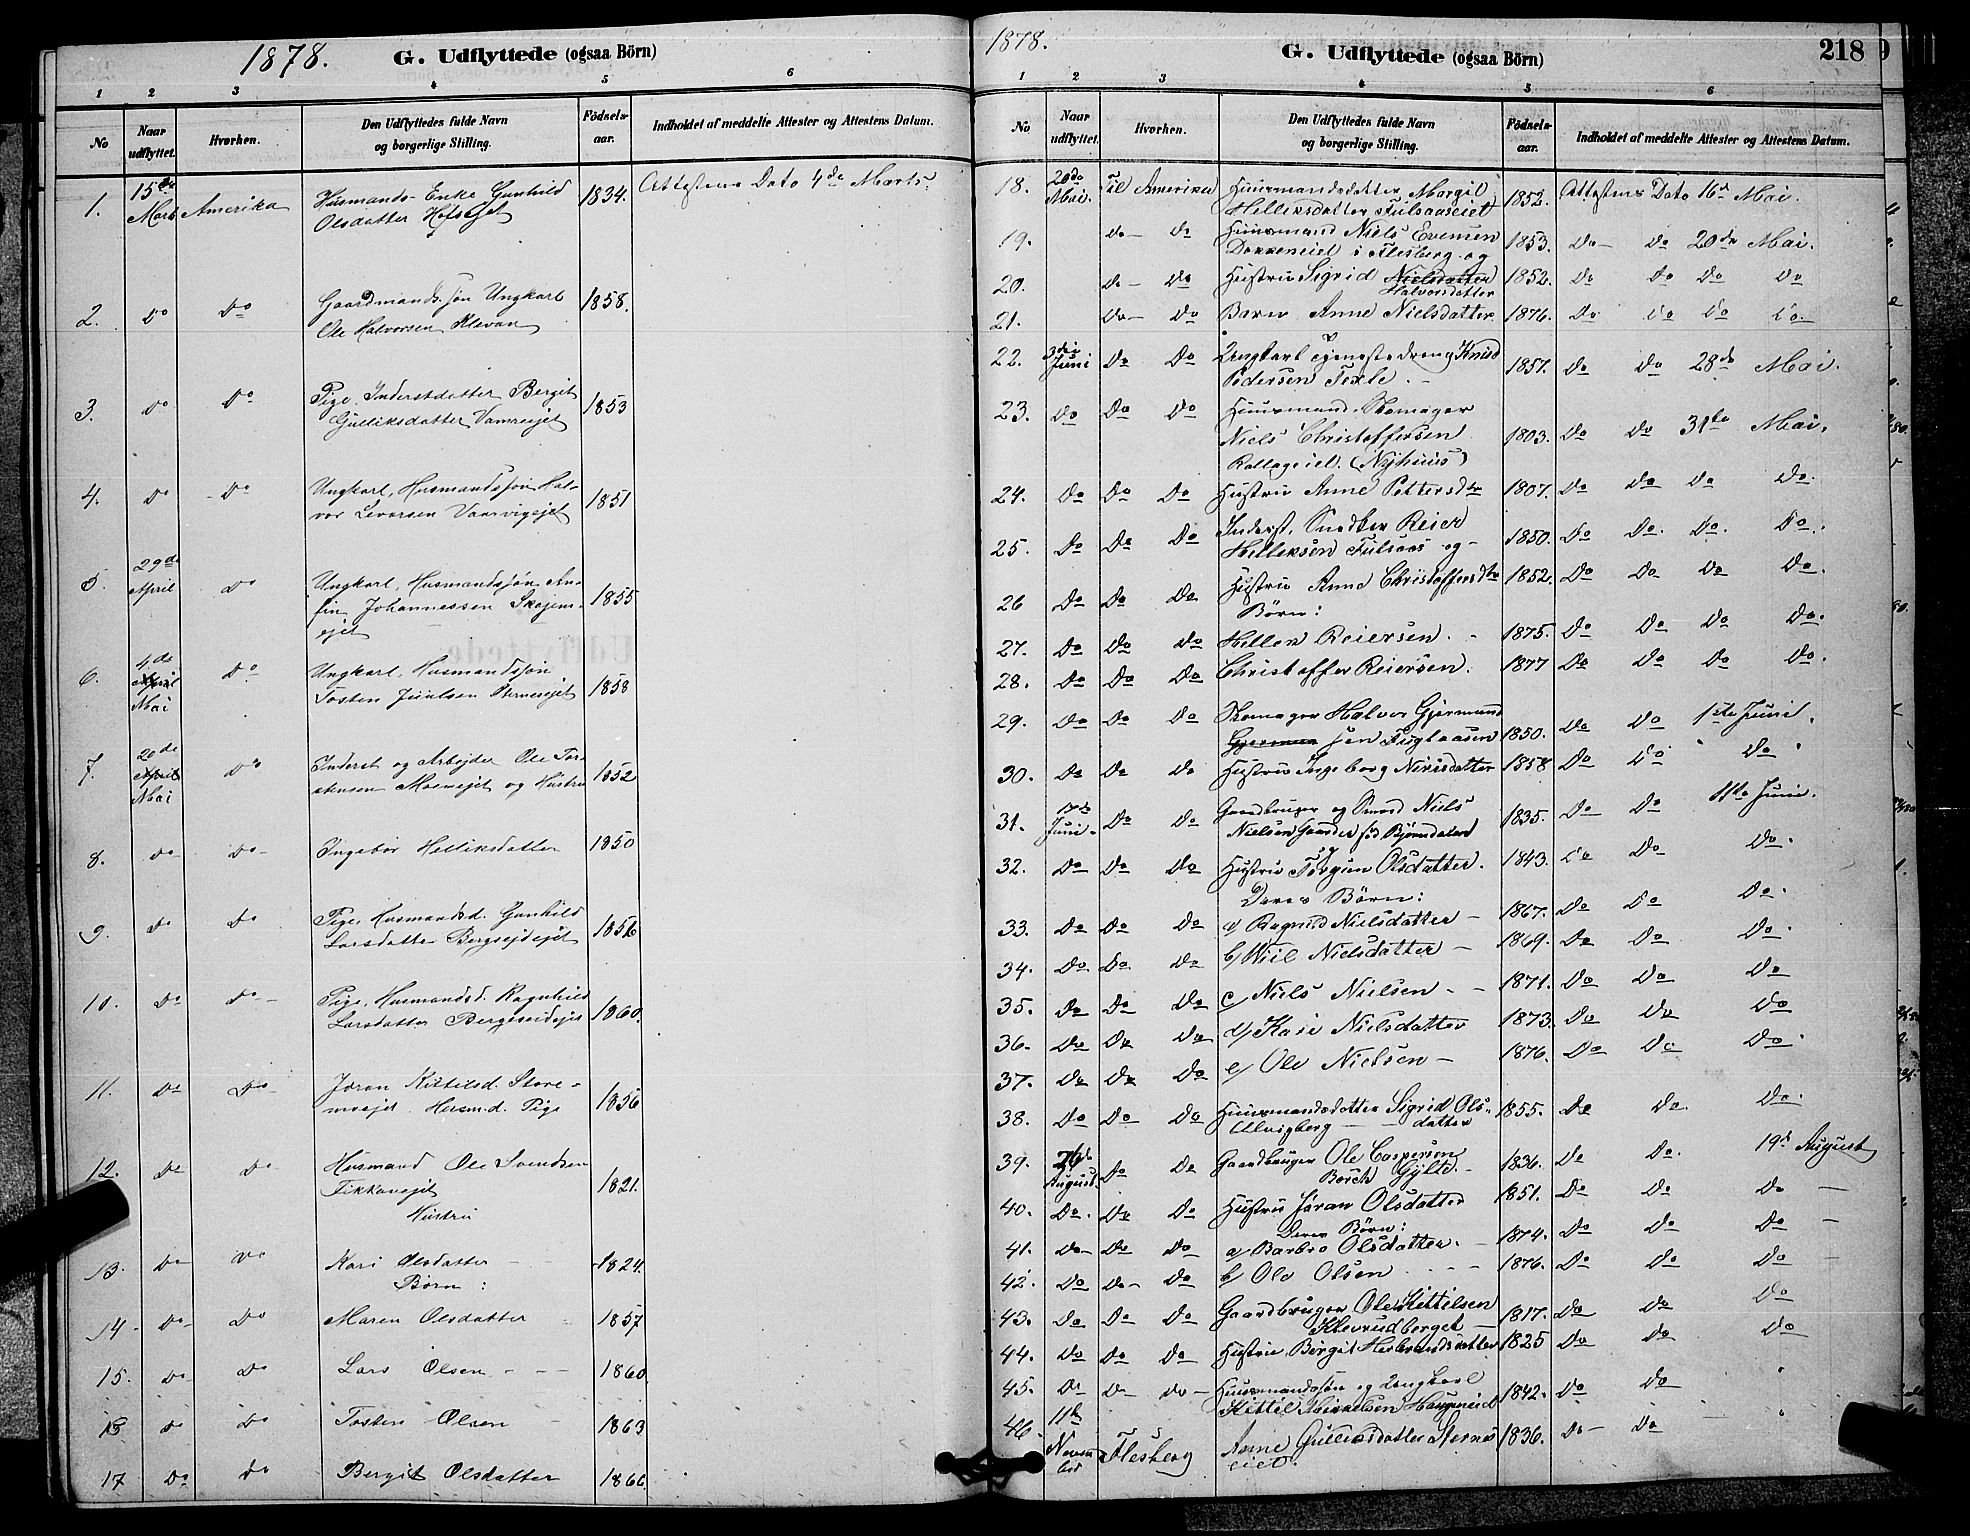 1878. G. Udflyttede (ogsaa Börn)
1 2 3 4 5 6
No Naar udflyttet. Hvorhen. Den Udflyttedes fulde Navn og borgerlige Stilling. Födsels-aar. Indholdet af meddelte Attester og Attestens Datum.
1. 15de Marts Amerika Husmands-Enke Gunhild 1834. Attestens Dato 4de Marts.
Olsdatter Hofsejet
2. Do Do Gaardmandssøn Ungkarl 1858.
Ole Halvorsen Klevan
3. Do Do Pige, Inderstdatter Bergit 1853
Gulliksdatter
4. Do Do Ungkarl, Husmandssøn Hal- 1851
vor Levorsen Vaarvigejet
5. 29de April Do Ungkarl, Husmandssøn An- 1855
fin Johannessen Skejem-
ejet
6. 4de April Mai Do Ungkarl, Husmandssøn 1858
Tosten Juulsen
7. 20de April Mai Do Inderst og Arbejder Ole Tor- 1852
stensen Moenejet og Hustru
8. Do Do Ingebor Helliksdatter 1850
9. Do Do Pige, Husmandsd. Gunhild 1856
Larsdatter Bergsejdejet
10. Do Do Pige, Husmandsd. Ragnhild 1860.
Larsdatter Bergseidejet
11. Do Do Jøran Kittilsd. Store- 1856
moejet. Husm.d. Pige
12. Do Do Husmand Ole Svendsen 1821.
Fikkanejet
Hustru
13. Do Do Kari Olsdatter 1824.
Børn:
14. Do Do Maren Olsdatter 1857
15. Do Do Lars Olsen 1860.
16 Do Do Tosten Olsen 1863
17 Do Do Bergit Olsdatter 1866.
1878. G. Udflyttede (ogsaa Börn) 218
1 2 3 4 5 6
No Naar udflyttet. Hvorhen. Den Udflyttedes fulde Navn og borgerlige Stilling. Födsels-aar. Indholdet af meddelte Attester og Attestens Datum.
18. 20de Mai. Til Amerika Huusmandsdatter Margit 1852. Attestens Dato 16d Mai.
Helliksdatter Fulsaaseiet
19. do - do Huusmand Niels Evensen 1853. Do - do 20de Mai.
Dokkeneiet i Flesberg og
20. do - Do Hustru Sigrid Nielsdatter 1852. Do do Do Do
Halvorsdatter
21. do - do Barn Anne Nielsdatter. 1876. Do do do do
22. 3die Juni Do Do Ungkarl Tjenestedreng Knud 1857. Do Do 28de Mai.
Pedersen Texle.
23. Do Do Do Huusmand. Skomager
Niels Christoffersen 1803. Do do 31te Mai.
Kollageiet. (Nyhuus)
24. Do Do Do Hustru Anne Pettersdtr 1807. Do do do Do.
25. Do Do Do Inderst, Snedker Reier 1850. Do Do. Do. Do.
Helliksen Fulsaas og
26 Do Do Do Hustru Anne Christoffersdtr 1852. Do Do Do Do.
Børn:
27. Do Do do Hellek Reiersen. 1875. Do Do Do Do.
28. Do Do Do Christoffer Reiersen. 1877 Do Do Do Do.
29. Do Do Do Skomager Halvor Gjermund
sen Fuglaasen 1850. Do Do 1ste Juni.
30. Do Do do Hustru Ingeborg Nirisdatter 1858 Do Do Do
31. 17de Juni Do Do Gaardbruger og Smed Niels 1835. Do Do 11te Juni.
Nielsen Gaarder fød Bjørndalen
32. Do Do Do Hustru Torgun Olsdatter. 1843. Do Do Do.
Deres Børn:
33. Do Do Do a/ Ragnild Nielsdatter 1867. Do Do Do.
34. Do Do. Do b/ Wiil Nielsdatter 1869. Do Do Do.
35. Do Do Do c/ Niels Nielsen 1871. Do Do Do
36. Do Do Do d/ Kari Nielsdatter 1873. Do Do Do
37. Do Do Do e/ Ole Nielsen 1876. Do Do Do.
38. Do Do Do Huusmandsdatter Sigrid Ols- 1855. Do Do. Do.
Ulvigberg datter
39. 26de August. Do Do Gaardbruger Ole Caspersen 1836. Do Do. 19d August
Børch Gylte.
40. Do. Do Do Hustru Jøran Olsdatter 1851. Do Do Do
Deres Børn:
41. Do Do Do a/ Barbro Olsdatter. 1874. Do Do Do
42. Do Do Do b/ Ole Olsen 1876. Do Do Do
43. Do Do Do Gaardbruger Ole Kittilsen 1817. Do Do Do
Klevrudberget
44. Do Do Do Hustru Birgit Herbrandsdatter 1825 Do Do Do
45. Do Do Do Huusmandssøn og Ungkarl 1842. Do Do
Kittil Mikkelsen Haugeneid
46. 11te Novem ber Flesberg Anne Gulliksdatter 1836. Do Do
eiet.